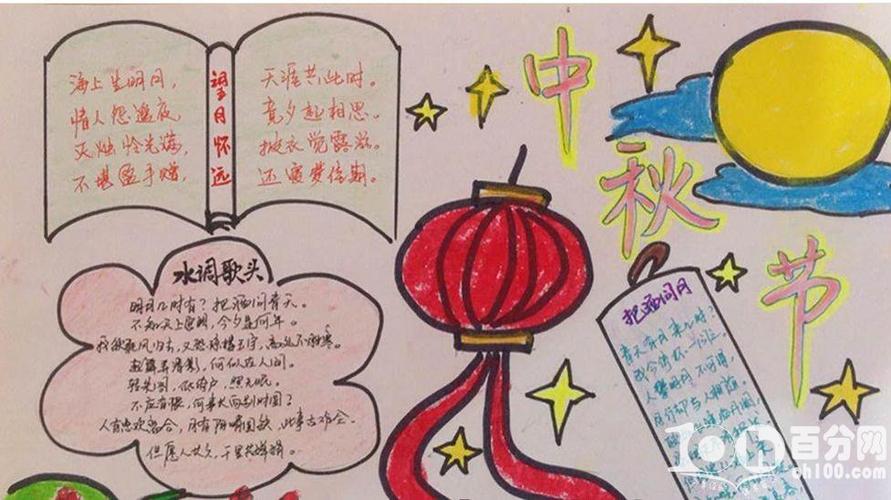 中秋节
望月怀远
海上生明月，
情人怨遥夜，
灭烛怜光满，
不堪盈手赠，
天涯共此时。
竟夕起相思。
披衣觉露滋。
还寝梦佳期。
水调歌头
明月几时有？把酒问青天。
不知天上宫阙，今夕是何年。
我欲乘风归去，又恐琼楼玉宇，高处不胜寒。
起舞弄清影，何似在人间。
转朱阁，低绮户，照无眠。
不应有恨，何事长向别时圆？
人有悲欢离合，月有阴晴圆缺，此事古难全。
但愿人长久，千里共婵娟。
把酒问月
青天有月来几时？
我今停杯一问之。
人攀明月不可得，
月行却与人相随。
百分网
oh100.com